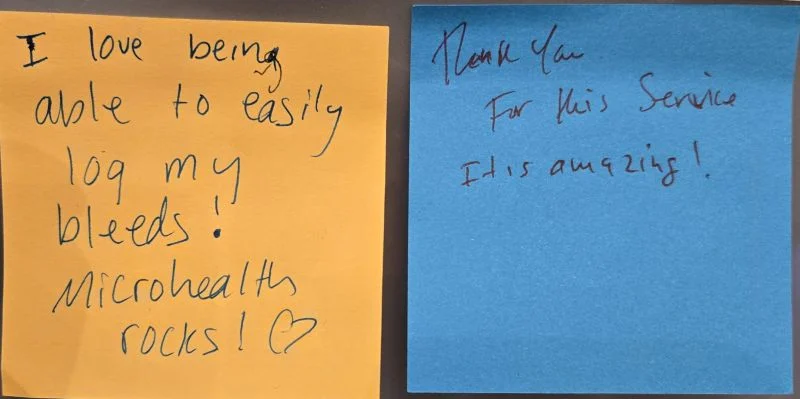 I love being
able to easily
log my
bleeds!
Microhealth
rocks! ♡
Thank You
For this Service
It is amazing!